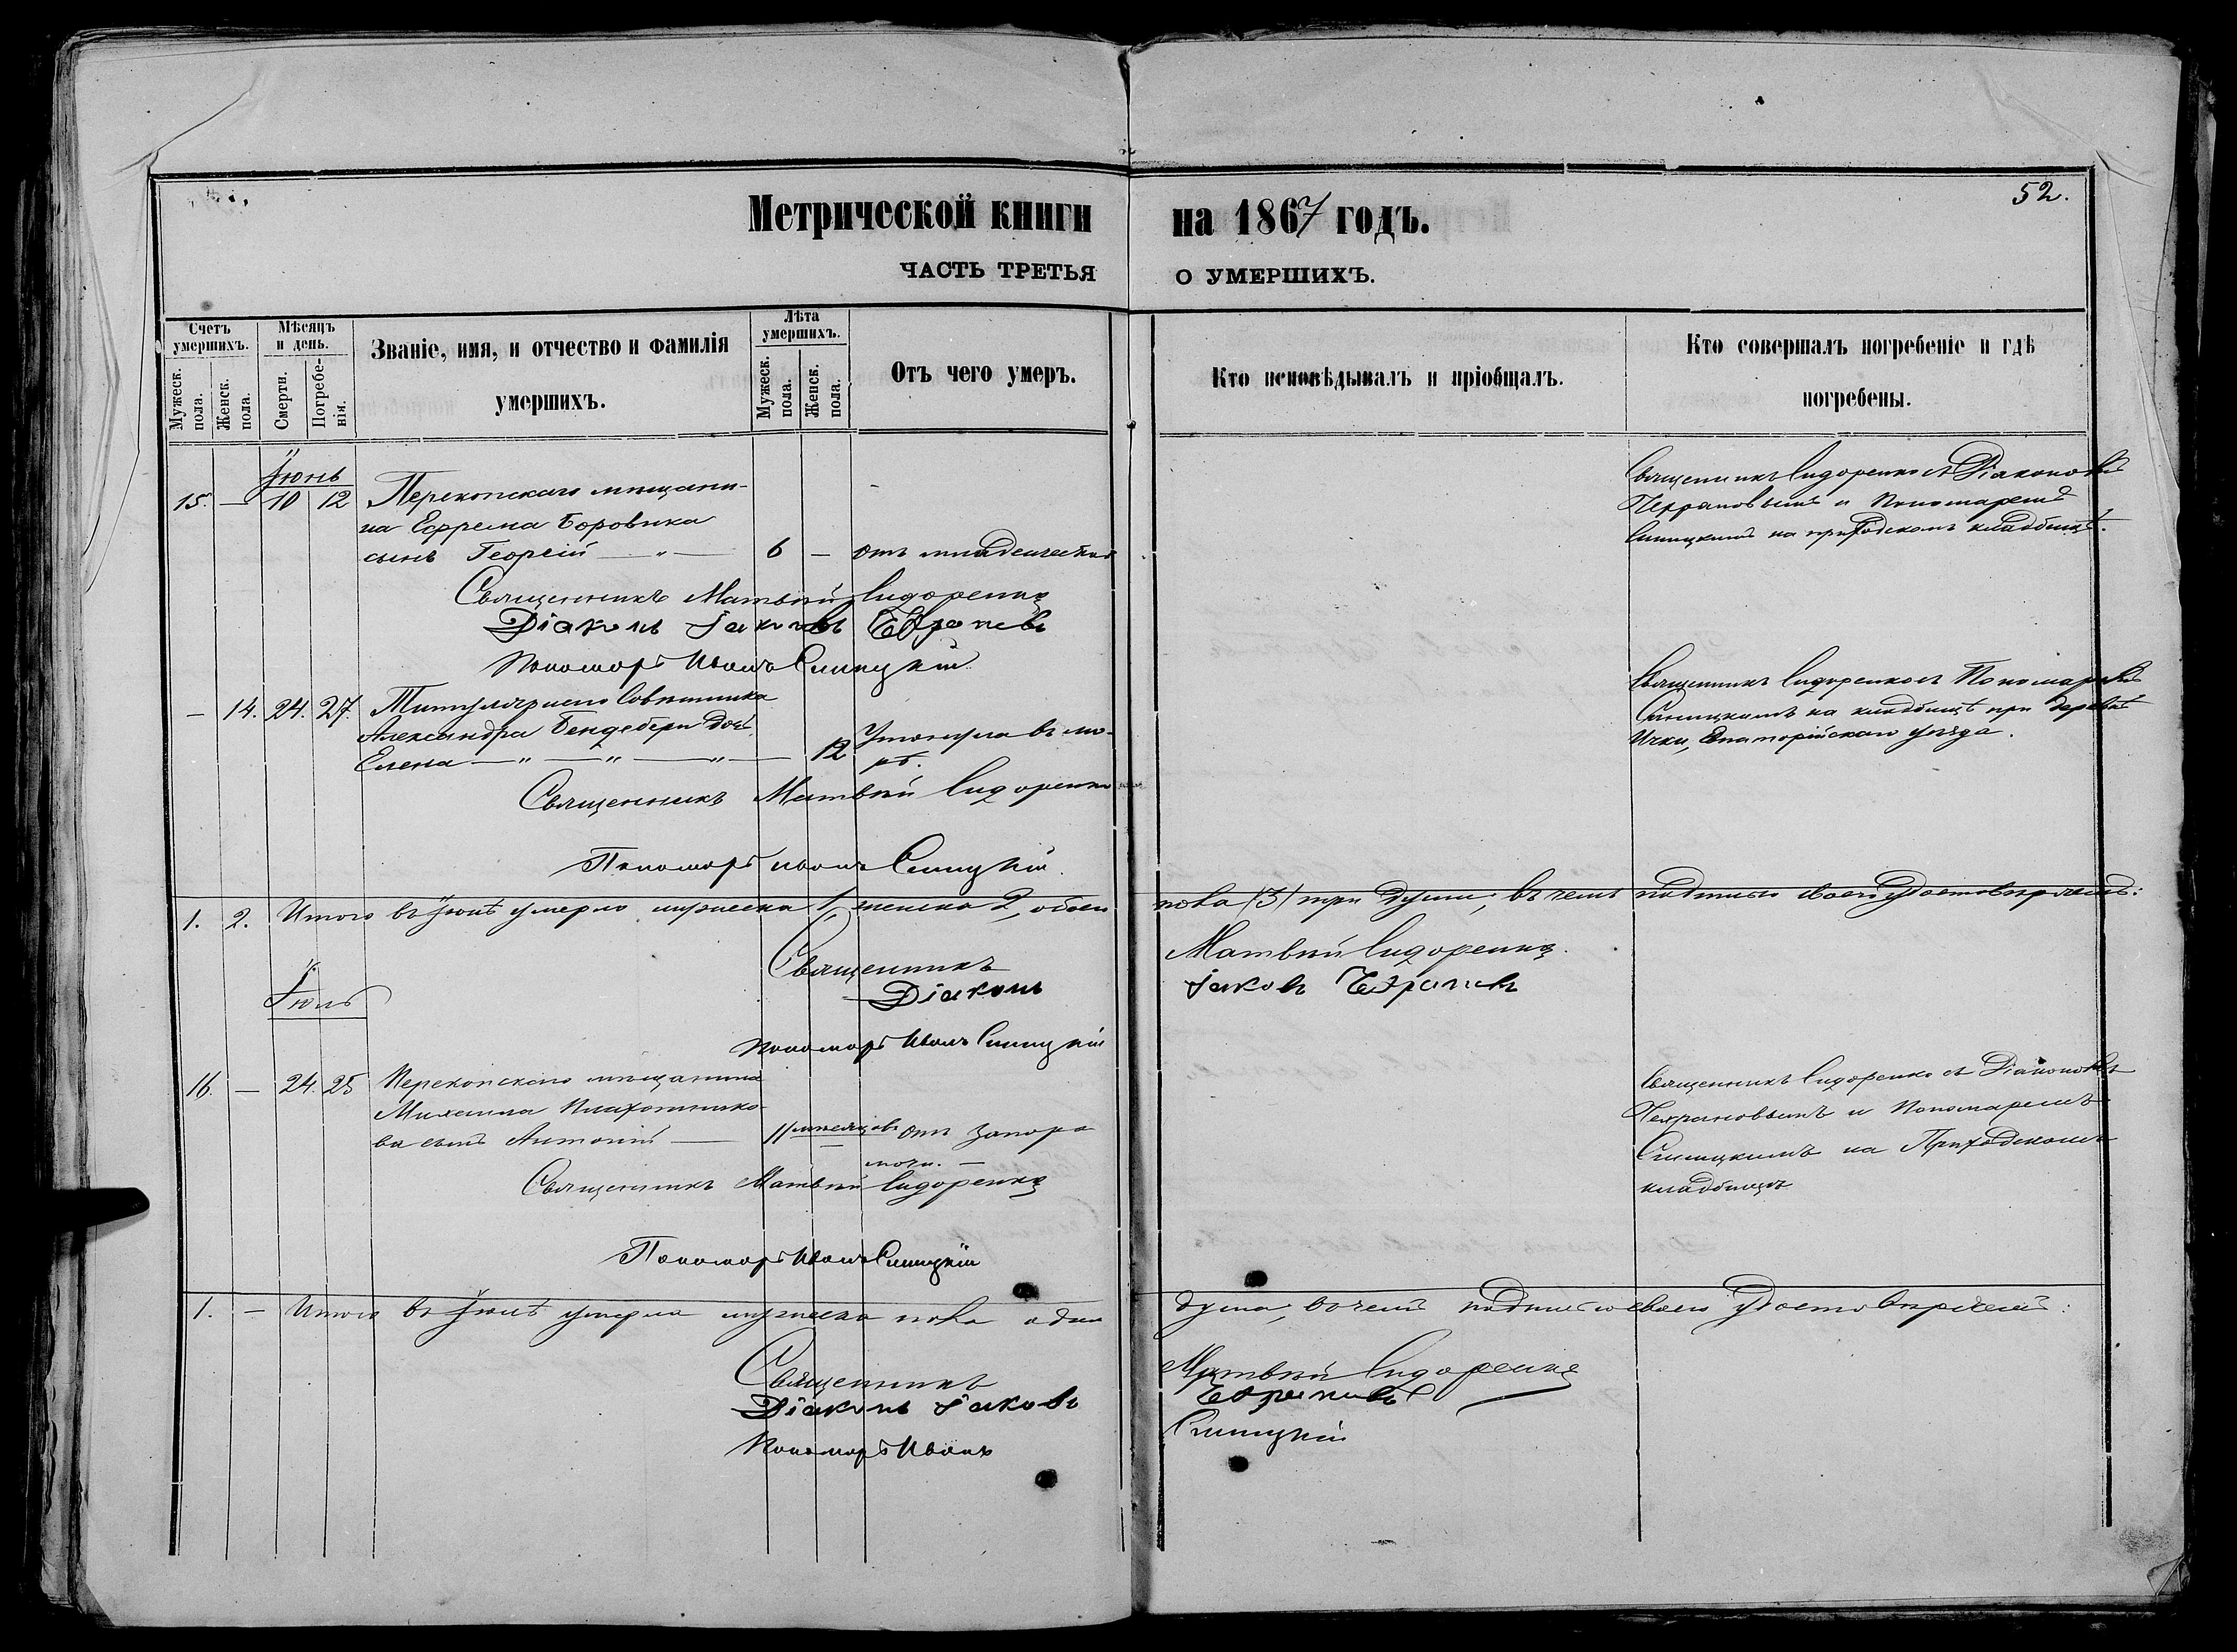 52.
Метрической книги на 1867 годъ.
ЧАСТЬ ТРЕТЬЯ О УМЕРШИХЪ.
Счетъ умершихъ.
Мужеск. пола.
Женск. пола.
Мѣсяцъ и день.
Смерти.
Погребенія.
Званіе, имя, и отчество и фамилія умершихъ.
Лѣта умершихъ.
Мужеск. пола.
Женск. пола.
Отъ чего умеръ.
Кто исповѣдывалъ и пріобщалъ.
Кто совершалъ погребеніе и гдѣ погребены.
Іюнь
15. — 10 12 Перекопскаго мѣщани-
на Ефрема Боровика
сынъ Георгій — „ — 6 — отъ младенческой
Священникъ Сидоренко съ Діакономъ
и Пономаремъ
Синицкимъ на приходскомъ кладбищѣ.
Священникъ Матвѣй Сидоренко
Діаконъ Іаковъ
Пономарь Иванъ Синицкій
— 14. 24. 27. Титулярнаго Совѣтника
Александра Бендебери дочь
Елена — „ — „ — „ — 12 Утонула въ мо-
рѣ.
Священникъ Сидоренко съ Пономаремъ
Синицкимъ на кладбищѣ при деревнѣ
Ички, Евпаторійскаго уѣзда.
Священникъ Матвѣй Сидоренко
Пономарь Иванъ Синицкій.
1. 2. Итого въ Іюнѣ умерло мужеска 1, женска 2, обоего пола (3) три души; въ чемъ подписью своею удостовѣряемъ:
Священникъ Матвѣй Сидоренко.
Діаконъ Іаковъ
Пономарь Иванъ Синицкій
Іюль
16. — 24. 25 Перекопскаго мѣщанина
Михаила Плахотнико-
ва сынъ Антоній — 11 мѣсяцовъ отъ запора
мочи. —
Священникъ Сидоренко съ Діакономъ
и Пономаремъ
Синицкимъ на Приходскомъ
кладбищѣ
Священникъ Матвѣй Сидоренко
Пономарь Иванъ Синицкій
1. — Итого въ Іюлѣ умерла мужеска пола одна душа, въ чемъ подписью своею удостовѣряемъ:
Священникъ Матвѣй Сидоренко
Діаконъ Іаковъ
Пономарь Иванъ Синицкій